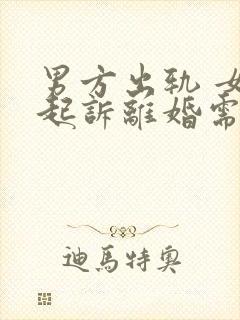 男方出軌 女
起訴離婚需
迪馬特奧